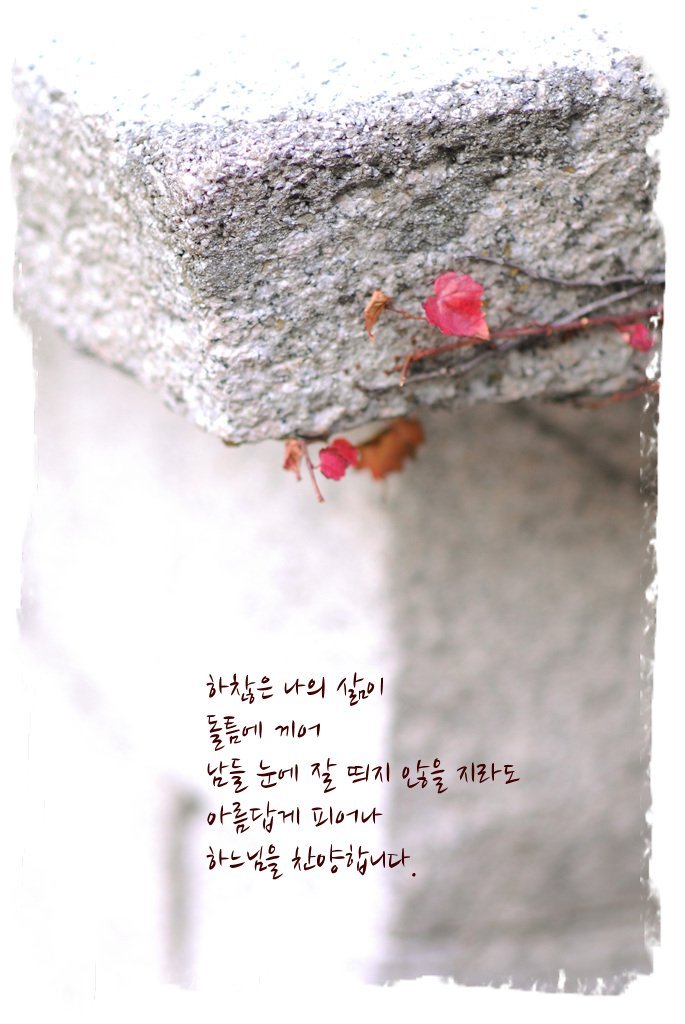 하찮은 나의 삶이
돌틈에 끼어
남들 눈에 잘 띄지 않을 지라도
아름답게 피어나
하느님을 찬양합니다.